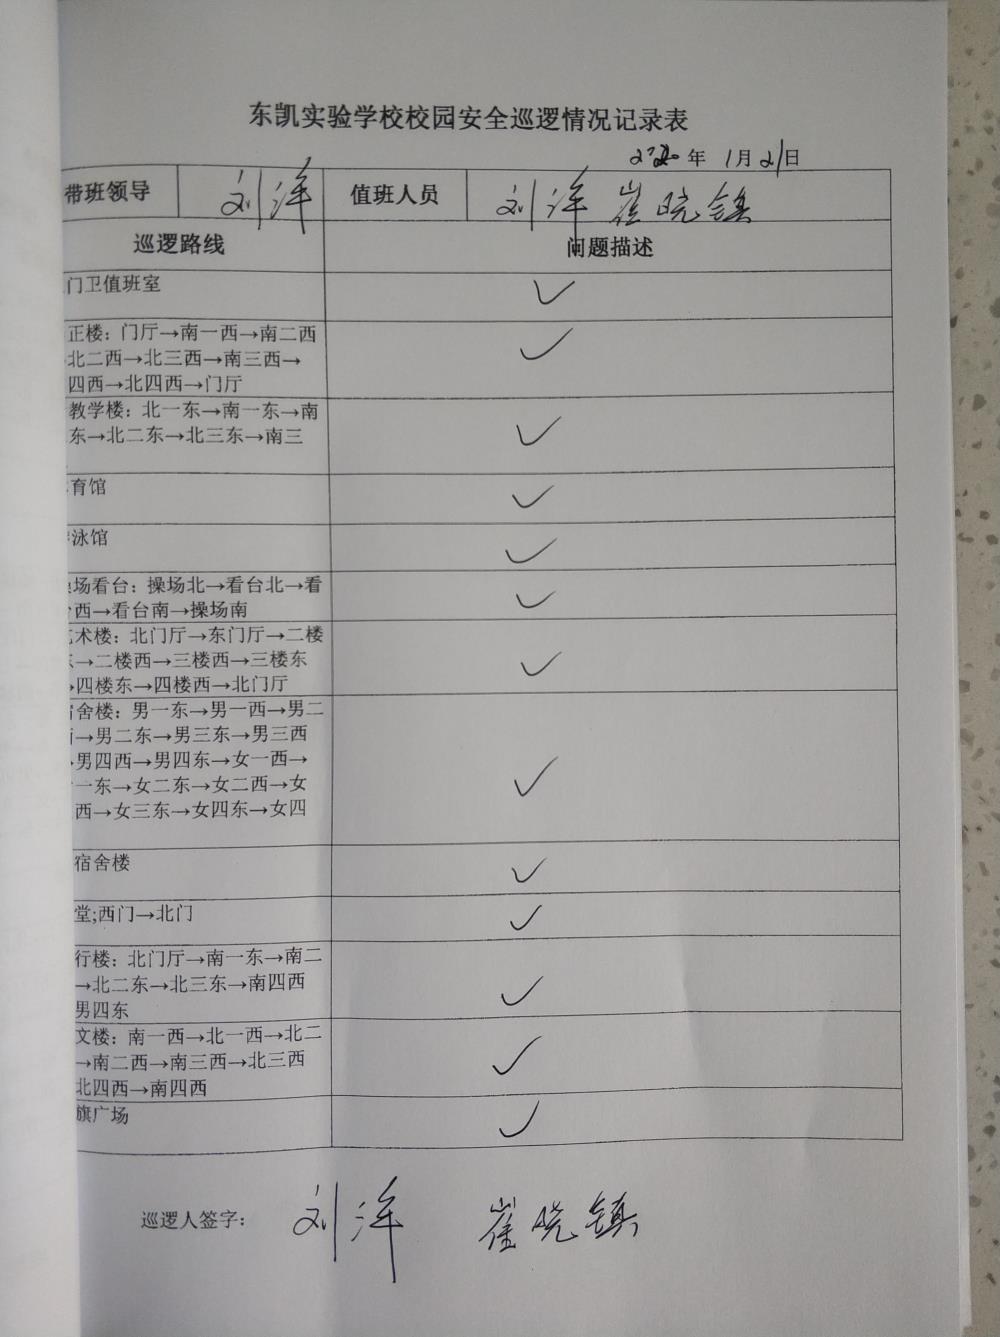 东凯实验学校校园安全巡逻情况记录表
2020年 1月21日
带班领导 刘洋 值班人员 刘洋 崔晓镇
巡逻路线 问题描述
门卫值班室 ✓
正楼：门厅→南一西→南二西 ✓
北二西→北三西→南三西→
四西→北四西→门厅
教学楼：北一东→南一东→南 ✓
东→北二东→北三东→南三
育馆 ✓
泳馆 ✓
场看台：操场北→看台北→看 ✓
西→看台南→操场南
术楼：北门厅→东门厅→二楼 ✓
→二楼西→三楼西→三楼东
→四楼东→四楼西→北门厅
舍楼：男一东→男一西→男二 ✓
→男二东→男三东→男三西
男四西→男四东→女一西→
一东→女二东→女二西→女
西→女三东→女四东→女四
宿舍楼 ✓
堂;西门→北门 ✓
行楼：北门厅→南一东→南二 ✓
→北二东→北三东→南四西
男四东
文楼：南一西→北一西→北二 ✓
→南二西→南三西→北三西
北四西→南四西
旗广场 ✓
巡逻人签字： 刘洋 崔晓镇